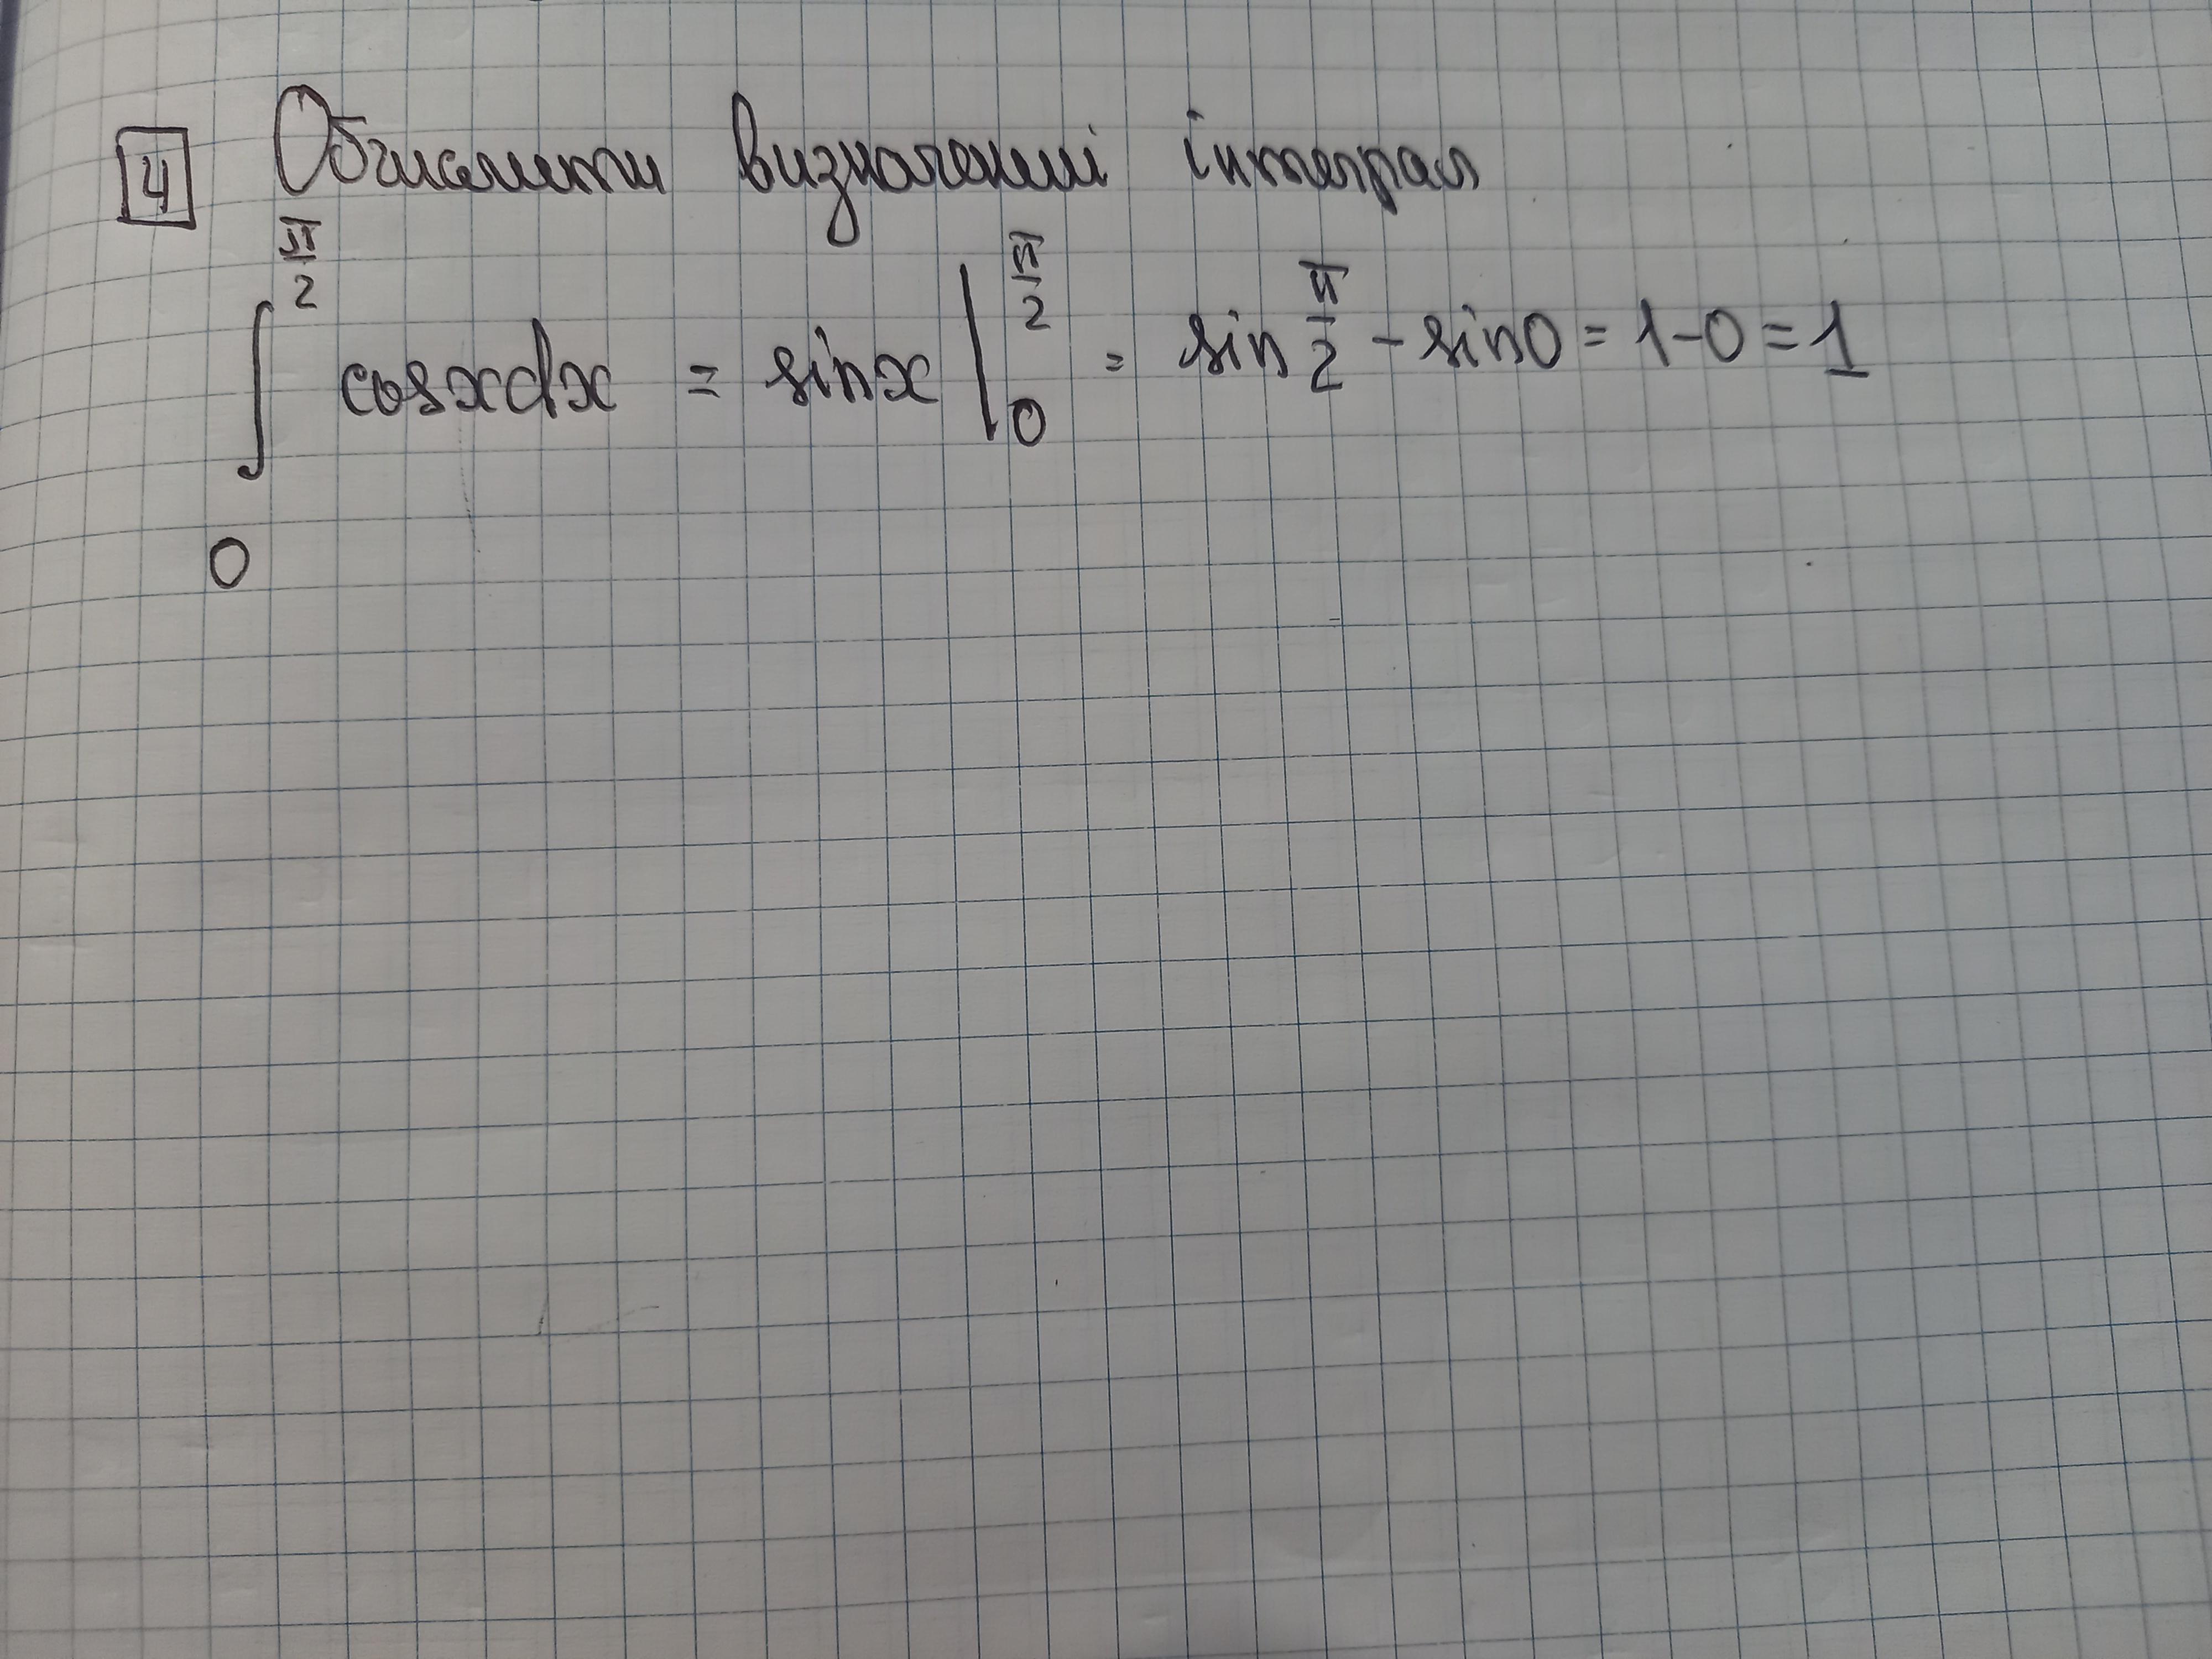 4 Обчислити визначений інтеграл
∫₀^(π/2) cosxdx = sinx |₀^(π/2) = sin π/2 - sin0 = 1-0 = 1